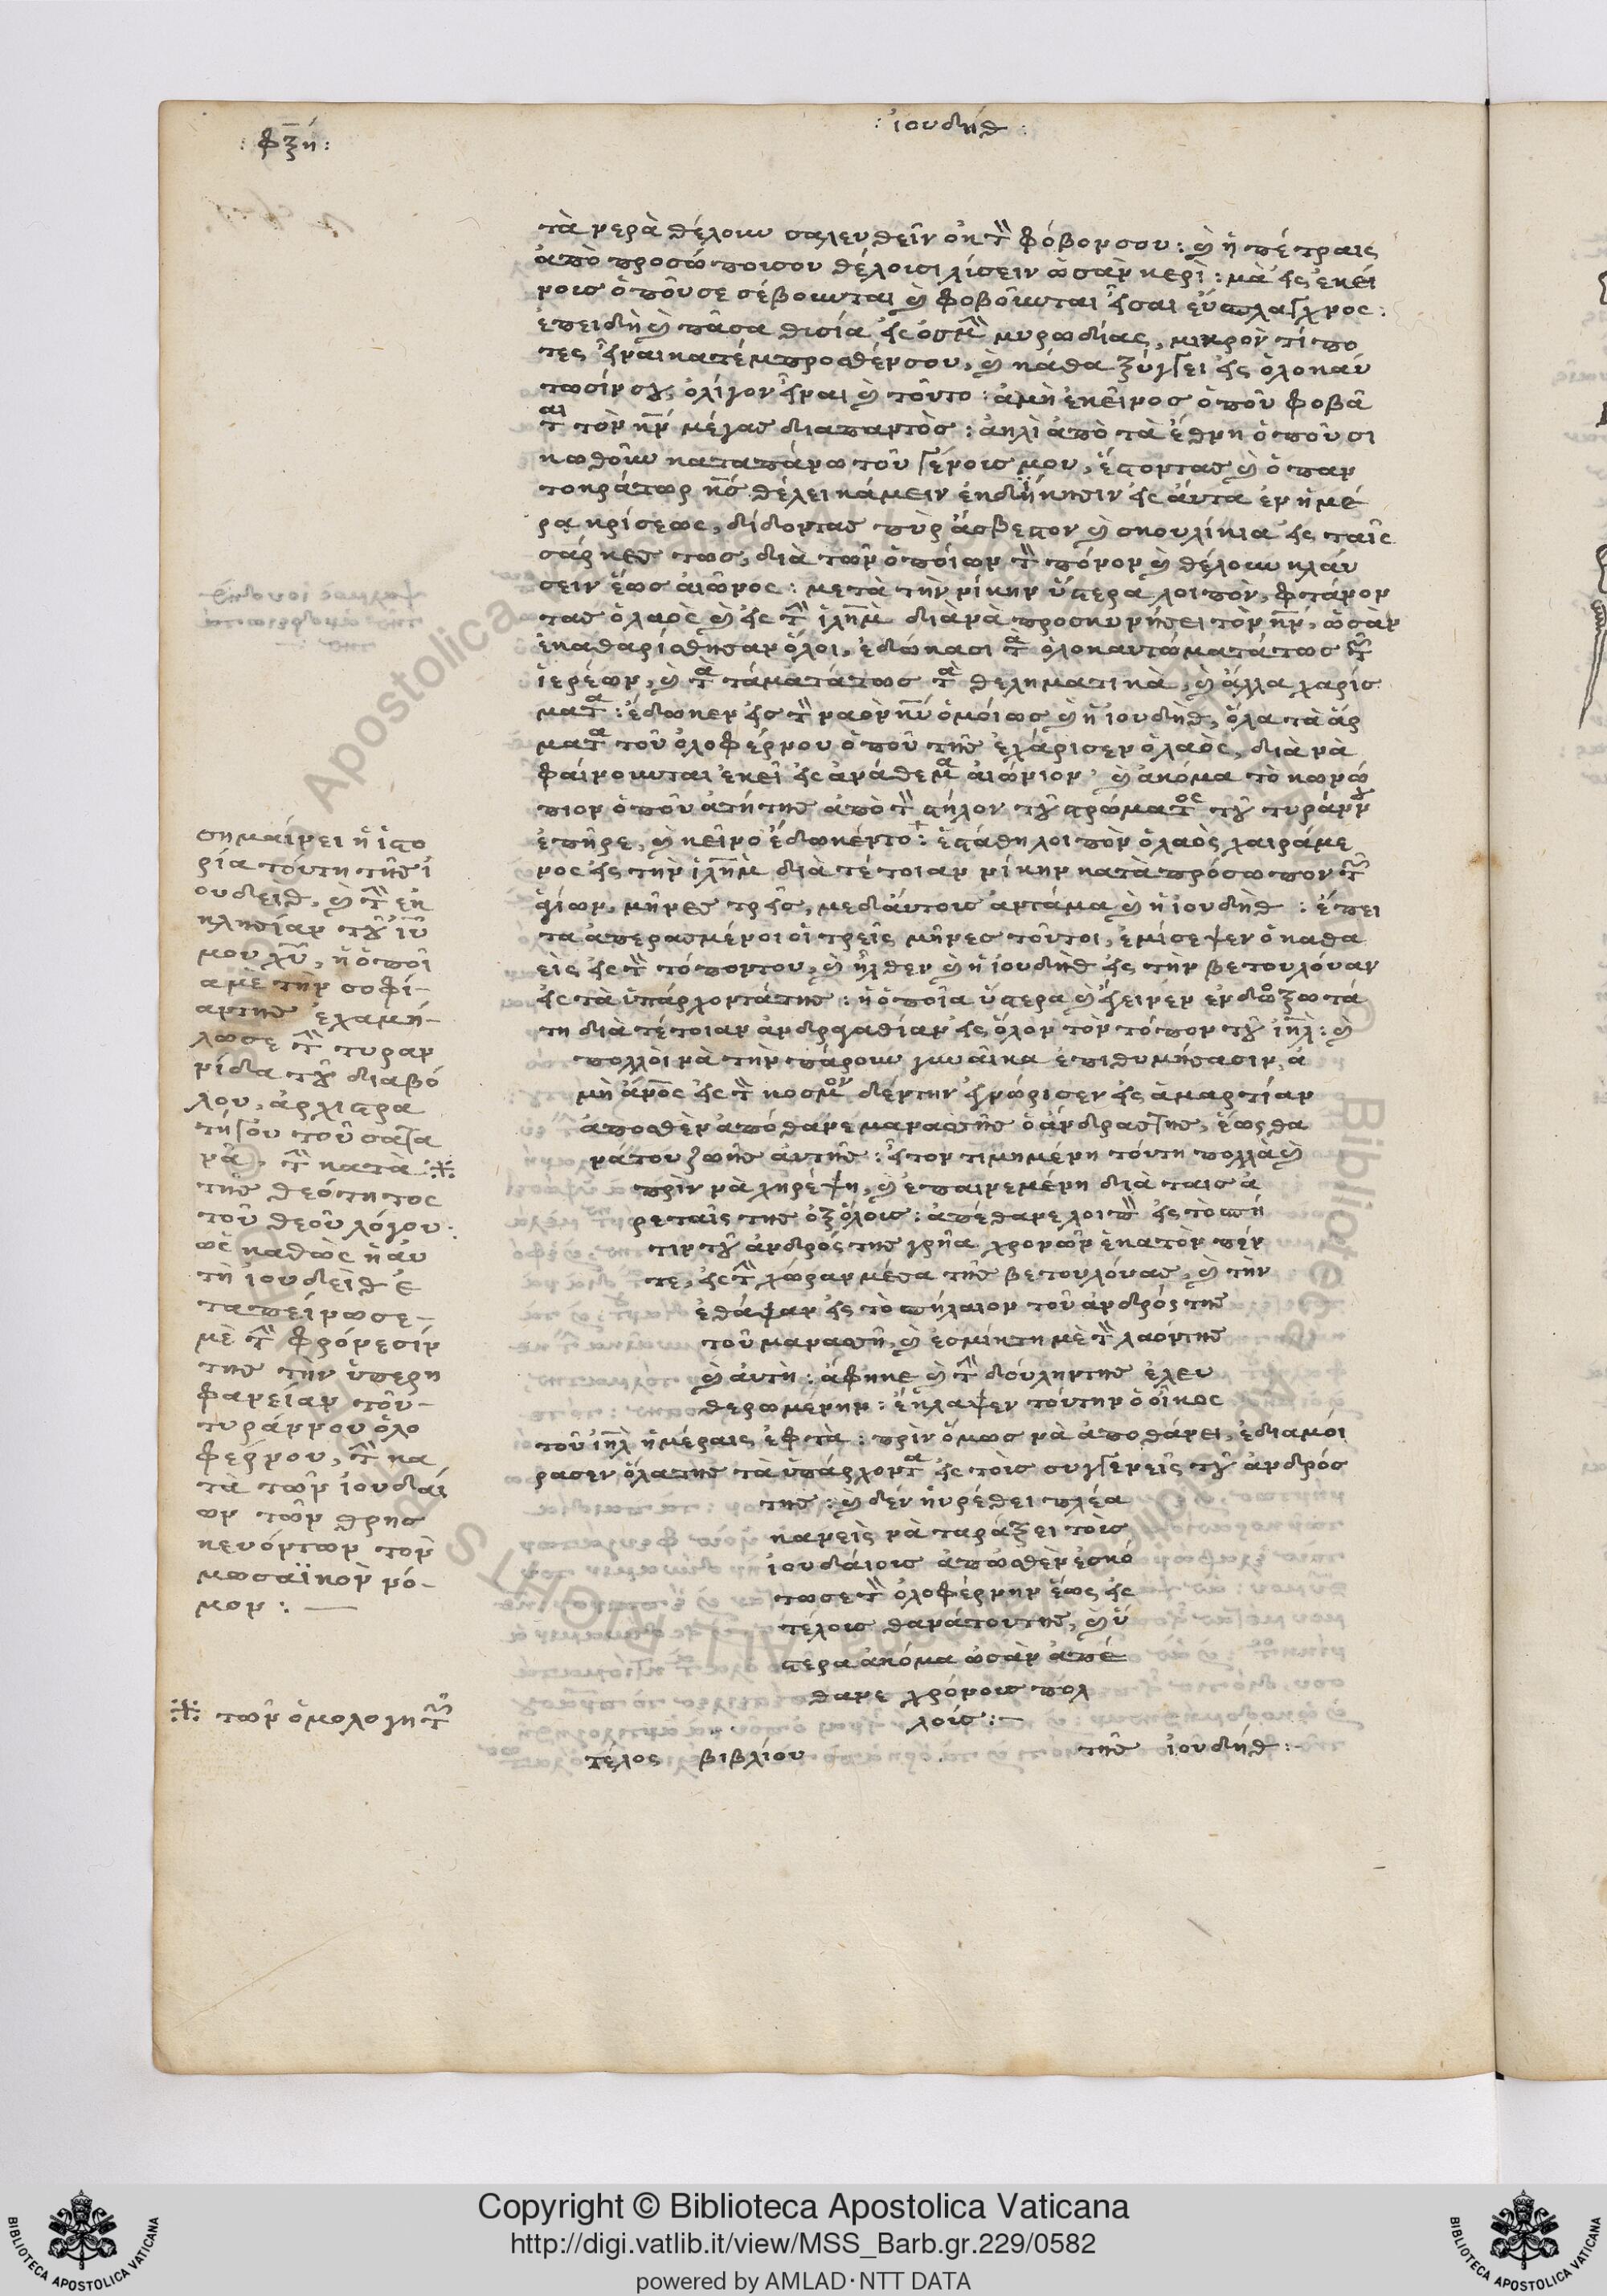 : φξή :
: ἰουδήθ :
τὰ νερὰ θέλουν σαλευθεῖν ἐκ τὸν φόβον σου : καὶ ἡ πέτραις
ἀπὸ προσώποισου θέλοισι λίσειν ὡσὰν κερὶ : μὰ εἰς ἐκεί
νοις ὁποῦ σε σέβουνται καὶ φοβοῦνται εἶσαι εὔσπλαγχνος :
ἐπειδὴ καὶ πᾶσα θισία εἰς ὀσμὴν μυρωδίας, μικρὸν τί πο
τες εἶναι κατέμπροσθέν σου, καὶ κάθα ξύγγει εἰς ὁλοκαύ
τωσίν σου, ὀλίγον εἶναι καὶ τοῦτο : ἀμὴ ἐκεῖνος ὁποῦ φοβᾶ
ται τὸν κν μέγας διαπαντὸς : ἀηλὶ ἀπὸ τὰ ἔθνη ὁποῦ σι
κωθοῦν καταπάνω τοῦ γένοις μου, ἔστοντας καὶ ὁ παν
τοκράτωρ κς θέλει κάμειν ἐκδήκησιν εἰς ἀυτα ἐν ἡμέ
ρα κρίσεως, δίδοντας πῦρ ἄσβεστον καὶ σκουλίκια εἰς ταῖς
σάρκες τως, διὰ τῶν ὁποίων τὸν πόνον καὶ θέλουν κλάυ
σειν ἕως αἰῶνος : μετὰ τὴν νίκην ὕστερα λοιπὸν, φτάνον
τας ὁ λαὸς καὶ εἰς τὴν ἱλημ διὰ νὰ προσκυνήσει τὸν κν, ὡσὰν
ἐκαθαρίσθησαν ὅλοι, ἐδώκασι τὰ ὁλοκαυτώματά τως τῶν
ἱερέων, καὶ τὰ τάματά τως τὰ θεληματικὰ, καὶ ἄλλα χαρίσ
ματα : ἔδωκεν εἰς τὸν ναὸν κυ ὁμοίως καὶ ἡ ἰουδὴθ, ὅλα τὰ ἄρ
ματα τοῦ ὀλοφέρνου ὁποῦ τῆς ἐχάρισεν ὁ λαὸς, διὰ νὰ
φαίνουνται ἐκεῖ εἰς ἀνάθεμα αἰώνιον, καὶ ἀκόμα τὸ κωνώ
πιον ὁποῦ ἀτήτης ἀπὸ τὸν στήλον τοῦ στρώματος τοῦ τυράννου
ἐπῆρε, καὶ κεῖνο ἔδωκέν το : ἐστάθη λοιπὸν ὁ λαὸς χαιράμε
νος εἰς τὴν ἱλημ διὰ τέτοιαν νίκην κατὰ πρόσωπον τῶν
ἁγίων, μῆνες τρεῖς, μεδάυτοις ἀντάμα καὶ ἡ ἰουδὴθ : ἔπει
τα ἀπερασμένοι οἱ τρεῖς μῆνες τοῦτοι, ἐμίσεψεν ὁ καθα
εἰς εἰς τὸν τόπον του, καὶ ἦλθεν καὶ ἡ ἰουδὴθ εἰς τὴν βετουλούαν
εἰς τὰ ὑπάρχοντά της : ἡ ὁποῖα ὕστερα καὶ ἔγεινεν ἐνδοξωτά
τη διὰ τέτοιαν ἀνδραγαθίαν εἰς ὅλον τὸν τόπον τοῦ ιηλ : καὶ
πολλὸι νὰ τὴν πάρουν γυναῖκα ἐπιθυμήσασιν, ἀ
μὴ ἄνος εἰς τὸν κοσμον δέν την ἐγνώρισεν εἰς ἁμαρτίαν
ἀποσθὲν ἀπόθανε μανασσῆς ὁ ἄνδρας της, ἕως θα
νάτου ζωῆς ἀυτῆς : ἦτον τιμημένη τούτη πολλὰ καὶ
πρὶν νὰ χηρέψη, καὶ ἐπαινεμένη διὰ ταις ἀ
ρεταῖς της ὀξ ὅλοις : ἀπέθανε λοιπ εἰς τὸ σπή
τιν τοῦ ἀνδρός της γρῆα χρονῶν ἑκατὸν πέν
τε, εἰς τὴν χώραν μέσα τῆς βετουλούας, καὶ τὴν
ἐθάψαν εἰς τὸ σπήλαιον τοῦ ἀνδρός της
τοῦ μανασσῆ, καὶ ἐσμίκτη μὲ τὸν λαόν της
καὶ ἀυτὴ : ἀφηκε καὶ τὴν δούλην της ἐλευ
θερωμένην : ἔκλαψεν τούτην ὁ οἶκος
τοῦ ιηλ ἡμέραις ἐφτὰ : πρὶν ὅμως νὰ ἀποθάνει, ἐδιαμοί
ρασεν ὅλα της τὰ ὑπάρχοντα εἰς τοὶς συγγενεῖς τοῦ ἀνδρός
της : καὶ δὲν ηὑρέθει πλέα
κανεὶς νὰ ταράξει τοὶς
ἰουδαίοις ἀποσθὲν ἐσκό
τωσε τὸν ὀλοφέρνην ἕως εἰς
τέλοις θανάτου της, καὶ ὕ
στερα ἀκόμα ὡσὰν ἀπέ
θανε χρόνοις πολ
λοίς :-
τέλος βιβλίου τῆς ἰουδήθ :-
σημαίνει ἡ ἱστο
ρία τούτη τῆς ἰ
ουδεὶθ, καὶ τὴν ἐκ
κλησίαν τοῦ ιυ
μου χυ, ἡ ὁποῖ
α μὲ τὴν σοφί-
αν της ἐχαμή-
λωσε τὴν τυραν
νίδα τοῦ διαβό
λου, ἀρχιστρα
τήγου τοῦ σατα
νᾶ. τὴν κατὰ ⁜
τῆς θεότητος
τοῦ θεοῦ λόγου :
ὡς καθὼς ἡ ἀυ
τὴ ἰουδεὶθ ἐ
ταπείνωσε-
μὲ τὴν φρόνεσίν
της τὴν ὑπερη
φανείαν τοῦ-
τυράννου ὀλο
φέρνου, τὴν κα
τὰ τῶν ἰουδαί
ων τῶν θρησ
κευόντων τὸν
μωσαϊκὸν νό-
μον :-
⁜ τῶν ὁμολογητῶν
Copyright © Biblioteca Apostolica Vaticana
http://digi.vatlib.it/view/MSS_Barb.gr.229/0582
powered by AMLAD·NTT DATA